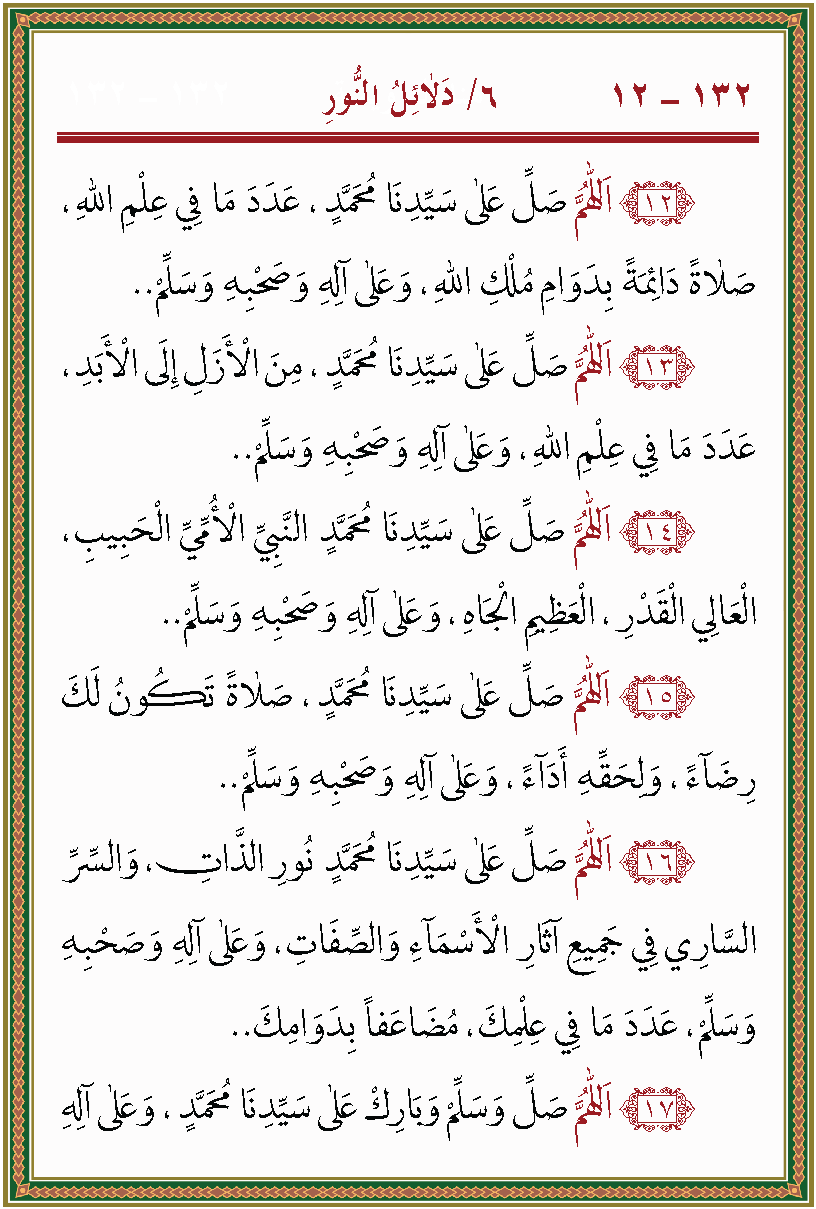 ١٣٢ – ١٢ ٦/ دَلَائِلُ النُّورِ ١٣٢ ١٣٢
١٢ اَللّٰهُمَّ صَلِّ عَلٰى سَيِّدِنَا مُحَمَّدٍ ، عَدَدَ مَا فِي عِلْمِ اللهِ ،
صَلَاةً دَائِمَةً بِدَوَامِ مُلْكِ اللهِ ، وَعَلٰى آلِهِ وَصَحْبِهِ وَسَلِّمْ..
١٣ اَللّٰهُمَّ صَلِّ عَلٰى سَيِّدِنَا مُحَمَّدٍ ، مِنَ الْأَزَلِ إِلَى الْأَبَدِ ،
عَدَدَ مَا فِي عِلْمِ اللهِ ، وَعَلٰى آلِهِ وَصَحْبِهِ وَسَلِّمْ..
١٤ اَللّٰهُمَّ صَلِّ عَلٰى سَيِّدِنَا مُحَمَّدٍ النَّبِيِّ الْأُمِّيِّ الْحَبِيبِ ،
الْعَالِي الْقَدْرِ ، الْعَظِيمِ الْجَاهِ ، وَعَلٰى آلِهِ وَصَحْبِهِ وَسَلِّمْ..
١٥ اَللّٰهُمَّ صَلِّ عَلٰى سَيِّدِنَا مُحَمَّدٍ ، صَلَاةً تَكُونُ لَكَ
رِضَآءً ، وَلِحَقِّهِ أَدَآءً ، وَعَلٰى آلِهِ وَصَحْبِهِ وَسَلِّمْ..
١٦ اَللّٰهُمَّ صَلِّ عَلٰى سَيِّدِنَا مُحَمَّدٍ نُورِ الذَّاتِ ، وَالسِّرِّ
السَّارِي فِي جَمِيعِ آثَارِ الْأَسْمَآءِ وَالصِّفَاتِ ، وَعَلٰى آلِهِ وَصَحْبِهِ
وَسَلِّمْ ، عَدَدَ مَا فِي عِلْمِكَ ، مُضَاعَفاً بِدَوَامِكَ..
١٧ اَللّٰهُمَّ صَلِّ وَسَلِّمْ وَبَارِكْ عَلٰى سَيِّدِنَا مُحَمَّدٍ ، وَعَلٰى آلِهِ